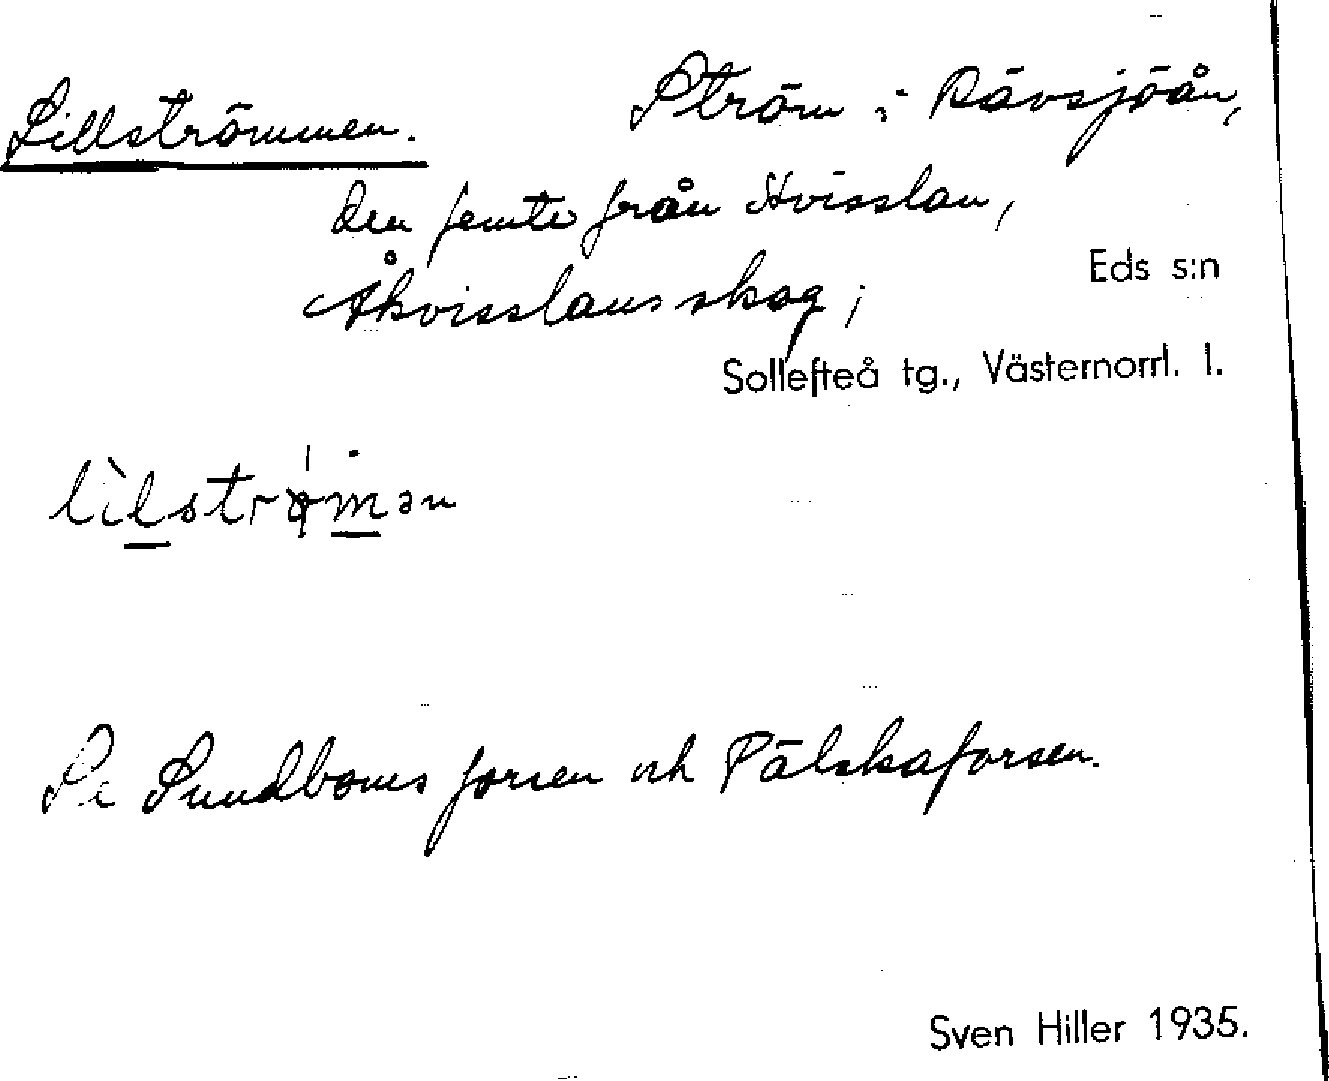 Lillströmmen. Ström i Rävsjöån,
den femte från Hvisslan,
Åkvisslans skog,
Eds s:n
Sollefteå tg., Västernorrl. l.
Se Sundboms forsen och Pälskaforsen.
Sven Hiller 1935.